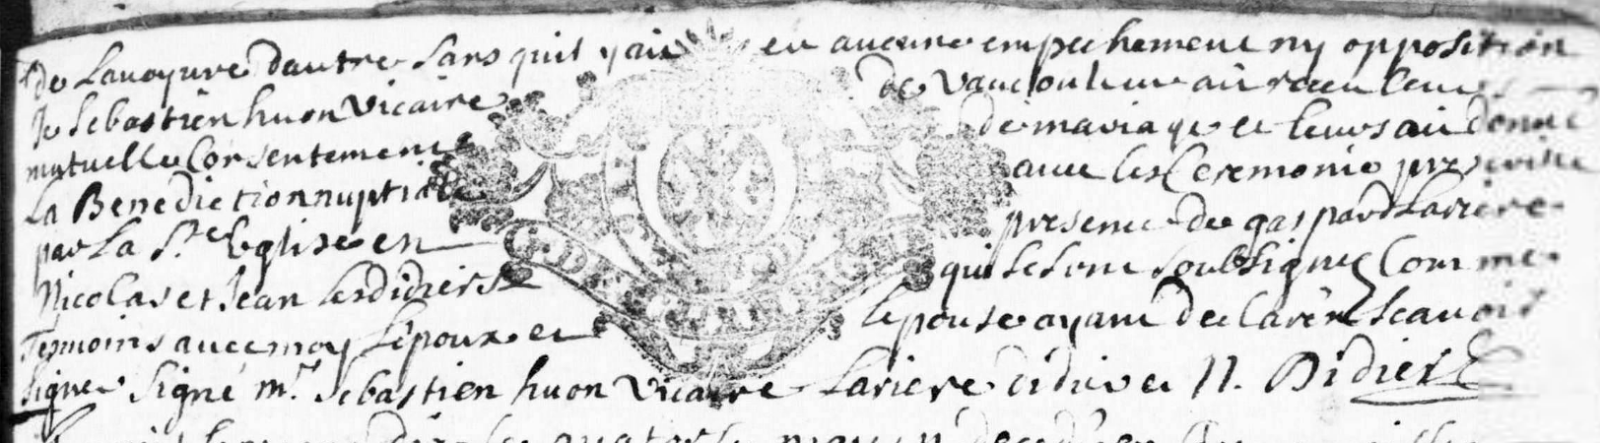 de Lavoyvre dautre sans quil y ait eu aucune empechement ny opposition
Je Sebastien huon Vicaire de Vaucouleur ai receu leur
mutuelle Consentement de mariage et leurs ai donné
La Benediction nuptiale avec les Ceremonie prescritte
par La Ste Eglise en presence de gaspard Lariere
Nicolas et Jean les didiers qui se sont soubsignez Comme
Tesmoins avec moy L'epoux et lepouse ayant declarér scavoir
signer signé mr. Sebastien huon Vicaire Lariere didier et N. Didier